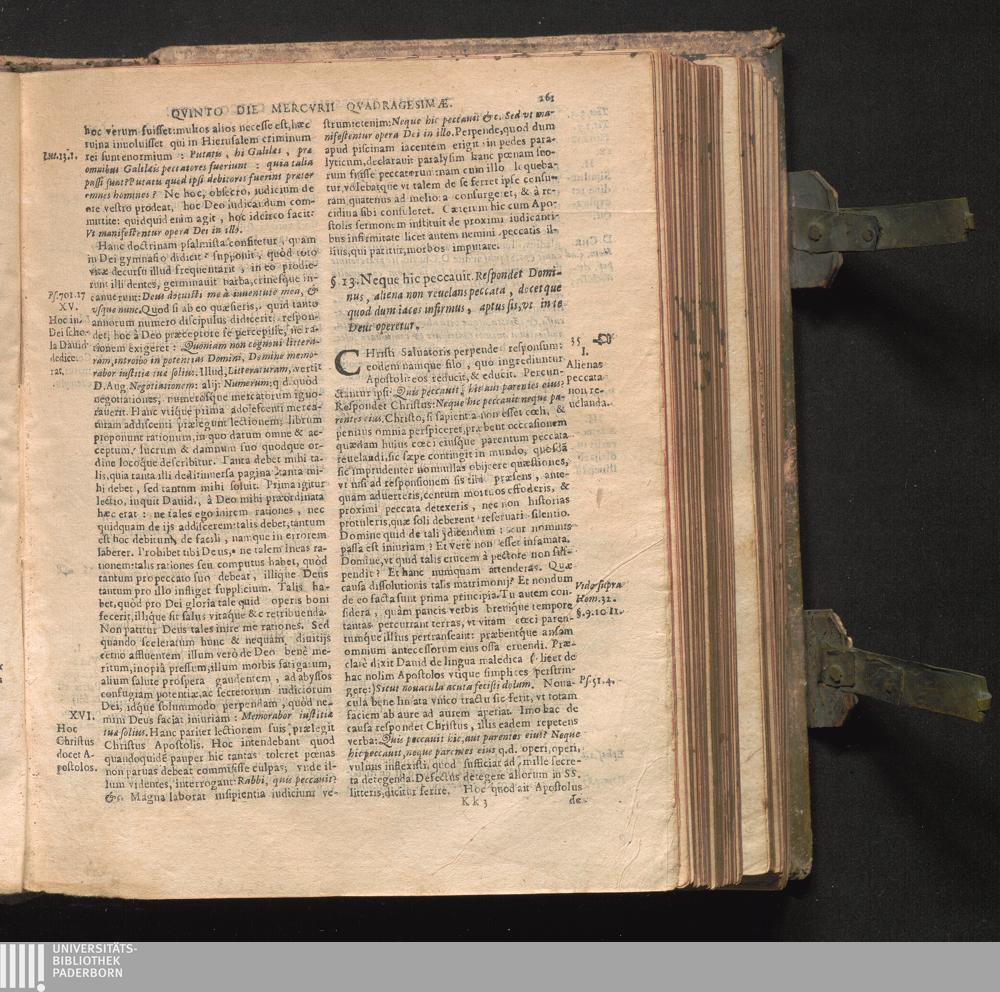 QVINTO DIE MERCVRII QVADRAGESIMÆ.
261
hoc verum fuisset: multos alios necesse est, hæc
ruina inuoluisset qui in Hierusalem criminum
Luc. 13. 1.
rei sunt enormium: Putatis, hi Galilæi, præ
omnibus Galilæis peccatores fuerunt: quia talia
passi sunt? Putatis quod ipsi debitores fuerint præter
omnes homines? Ne hoc, obsecro, iudicium de
ore vestro prodeat, hoc Deo iudicandum com-
mittite: quidquid enim agit, hoc idcirco facit:
Vt manifestentur opera Dei in illo.
Hanc doctrinam psalmista confitetur, quam
in Dei gymnasio didicit: supponit, quòd toto
vitæ decursu illud frequentarit, in eo prodie-
runt illi dentes, germinauit barba, crinesque in-
Ps. 70 1. 17
canuerunt: Deus docuisti me à iuuentute mea, &
XV.
vsque nunc. Quod si ab eo quæsieris, quid tanto
Hoc in
annorum numero discipulus didicerit: respon-
Dei scho-
det, hoc à Deo præceptore se percepisse, ne ra-
la Dauid
tionem exigeret: Quoniam non cognoui littera-
dedice-
ram, introibo in potentias Domini, Domine memo-
rat.
rabor iustitiæ tuæ solius. Illud, Litteraturam, vertit
D. Aug. Negotiationem: alij: Numerum: q.d. quòd
negotiationes, numerosque mercatorum igno-
rauerit. Hanc vtique prima adolescenti merca-
turam addiscenti prælegunt lectionem, librum
proponunt rationum, in quo datum omne & ac-
ceptum, lucrum & damnum suo quodque or-
dine locoque describitur. Tanta debet mihi ta-
lis, quia tanta illi dedi: inuersa pagina: tanta mi-
hi debet, sed tantum mihi soluit. Prima igitur
lectio, inquit Dauid, à Deo mihi præordinata
hæc erat: ne tales ego inirem rationes, nec
quidquam de ijs addiscerem: talis debet, tantum
est hoc debitum, de facili, namque in errorem
laberer. Prohibet tibi Deus, ne talem ineas ra-
tionem: talis rationes seu computus habet, quòd
tantum pro peccato suo debeat, illique Deus
tantum pro illo infliget supplicium. Talis ha-
bet, quòd pro Dei gloria tale quid operis boni
fecerit, illique sit salus vitaque &c retribuenda.
Non patitur Deus tales inire me rationes. Sed
quando sceleratum hunc & nequam diuitijs
cerno affluentem, illum verò de Deo benè me-
ritum, inopiâ pressum, illum morbis fatigatum,
alium salute prospera gaudentem, ad abyssos
confugiam potentiæ, ac secretorum iudiciorum
Dei, idque solummodo perpendam, quòd ne-
XVI.
mini Deus faciat iniuriam: Memorabor iustitiæ
Hoc
tuæ solius. Hanc pariter lectionem suis prælegit
Christus
Christus Apostolis. Hoc intendebant quod
docet A-
quandoquidē pauper hic tantas toleret pœnas
postolos.
non paruas debeat commisisse culpas, vnde il-
lum videntes, interrogant: Rabbi, quis peccauit?
&c. Magna laborat insipientia iudicium ve-
strum: etenim: Neque hic peccauit &c. Sed vt ma-
nifestentur opera Dei in illo. Perpende, quod dum
apud piscinam iacentem erigit in pedes para-
lyticum, declarauit paralysim hanc pœnam suo-
rum fuisse peccatorum: nam cum illo loqueba-
tur, volebatque vt talem de se ferret ipse censu-
ram quatenus ad meliora consurgeret, & à re-
cidiua sibi consuleret. Cæterum hic cum Apo-
stolis sermonem instituit de proximi iudicanti-
bus infirmitate licet autem nemini peccatis il-
lius, qui patitur, morbos imputare.
§. 13. Neque hic peccauit. Respondet Domi-
nus, aliena non reuelans peccata, docetque
quod dum iaces infirmus, aptus sis, vt in te
Deus operetur.
CHristi Saluatoris perpende responsum:
35
I.
eodem namque filo, quo ingrediuntur
Alienas
Apostoli: eos reducit, & educit. Percun-
peccata
ctantur ipsi: Quis peccauit, hic aut parentes eius?
non re-
Respondet Christus: Neque hic peccauit neque pa-
uelanda.
rentes eius. Christo, si sapientia non esset cœli, &
penitus omnia perspiceret, præbent occasionem
quædam huius cœci eiusque parentum peccata
reuelandi, sic sæpe contingit in mundo, quosdā
sic imprudenter nonnullas obijcere quæstiones,
vt nisi ad responsionem sis tibi præsens, ante-
quam aduerteris, centum mortuos effoderis, &
proximi peccata detexeris, nec non historias
protuleris, quæ soli deberent reseruari silentio.
Domine quid de tali dicendum: cur nominis
passa est iniuriam? Et verè non esset infamata.
Domine, vt quid talis crucem à pectore non sus-
pendit? Et hanc nunquam attenderas. Quæ
causa dissolutionis talis matrimonij? Et nondum
Vide supra
de eo facta sunt prima principia. Tu autem con-
Hom. 32.
sidera, quàm paucis verbis breuique tempore
§. 9. 10. 11.
tantas percurrant terras, vt vitam cœci paren-
tumque illius pertranseant: præbentque ansam
omnium antecessorum eius ossa eruendi. Præ-
clarè dixit Dauid de lingua maledica (licet de
hac nolim Apostolos vtique simplices perstrin-
gere:) Sicut nouacula acuta fecisti dolum. Noua-
Ps. 51. 4.
cula bene limata vnico tractu sic ferit, vt totam
faciem ab aure ad aurem aperiat. Imo hac de
causa respondet Christus, illis eadem repetens
verba: Quis peccauit hic, aut parentes eius? Neque
hic peccauit, neque parentes eius q.d. operi, operi,
vulnus inflexisti, quod sufficiat ad mille secre-
ta detegenda. Defectus detegere aliorum in SS.
litteris, dicitur ferire. Hoc quod ait Apostolus
K k 3
de
UNIVERSITÄTS-
BIBLIOTHEK
PADERBORN